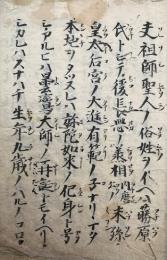 夫祖師聖人ノ俗姓ヲイヘハ藤原
氏トシテ後長岡ノ丞相 内麿 末孫
皇太后宮ノ大進有範ノ子ナリマタ
本地ヲタツヌレハ弥陀如来ノ化身ト号シ
アルヒハ曇鸞大師ノ再誕トモイヘリ
シカレハスナハチ生年九歳ノハルノコロ